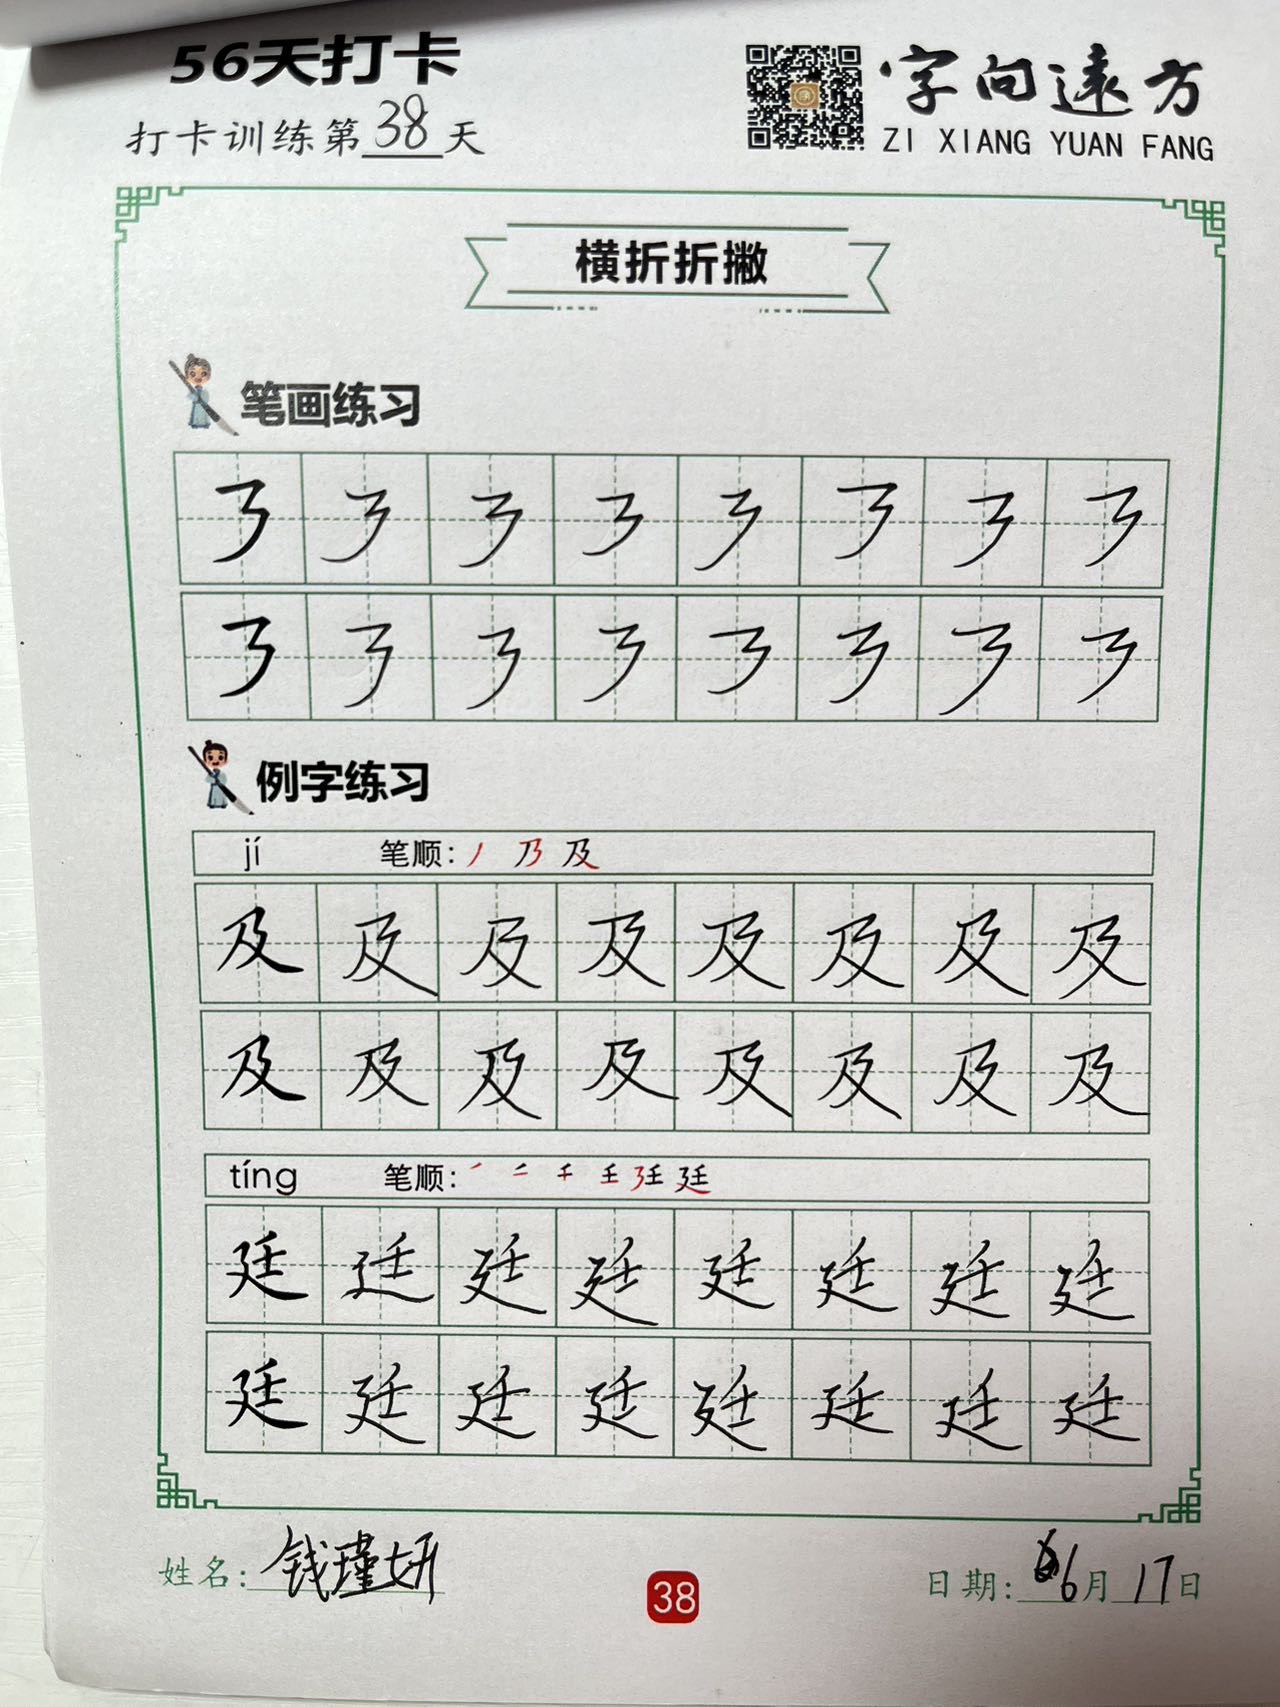 56天打卡
打卡训练第38天
字向远方
ZI XIANG YUAN FANG
横折折撇
笔画练习
㇋ ㇋ ㇋ ㇋ ㇋ ㇋ ㇋ ㇋
㇋ ㇋ ㇋ ㇋ ㇋ ㇋ ㇋ ㇋
例字练习
jí 笔顺: 丿 乃 及
及 及 及 及 及 及 及 及
及 及 及 及 及 及 及 及
tíng 笔顺: 廷
廷 廷 廷 廷 廷 廷 廷 廷
廷 廷 廷 廷 廷 廷 廷 廷
姓名: 钱瑾妍
38
日期: 6月17日